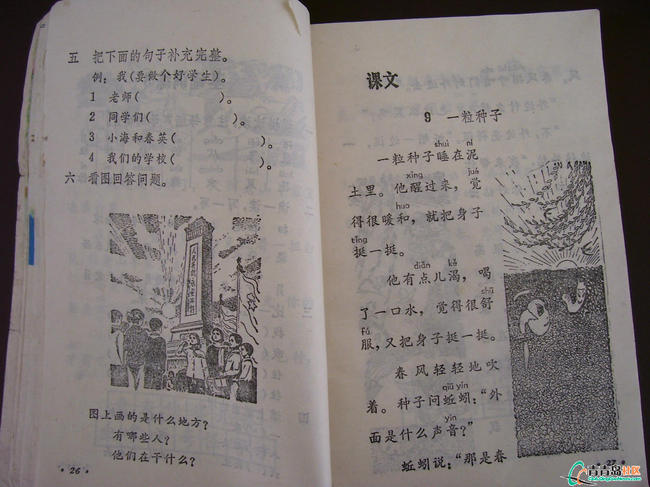 五 把下面的句子补充完整。
例：我(要做个好学生)。
1 老师( )。
2 同学们( )。
3 小海和春英( )。
4 我们的学校( )。
六 看图回答问题。
图上画的是什么地方？
有哪些人？
他们在干什么？
·26·
课文
9 一粒种子
shuì ní
一粒种子睡在泥
xǐng jué
土里。他醒过来，觉
huo
得很暖和，就把身子
tǐng
挺一挺。
diǎn kě
他有点儿渴，喝
shū
了一口水，觉得很舒
fú
服，又把身子挺一挺。
春风轻轻地吹
qiū yǐn
着。种子问蚯蚓：“外
yīn
面是什么声音？”
蚯蚓说：“那是春
·27·
青青岛社区